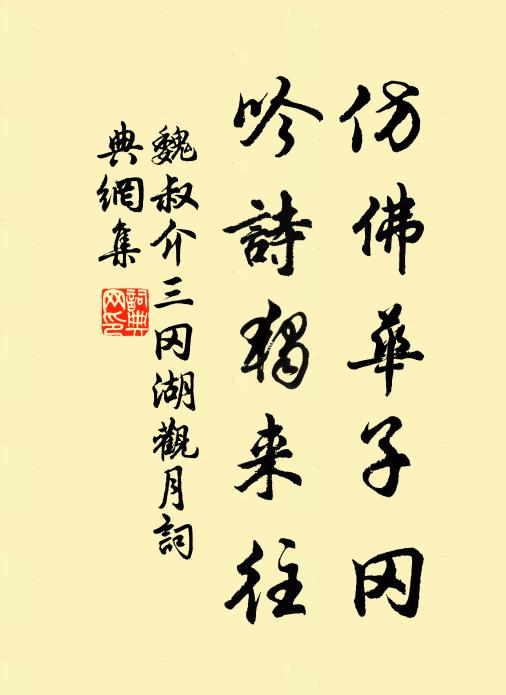 仿佛華子冈
吟詩独来往
魏叔介三冈湖觀月詞
典網集
詞典
网印